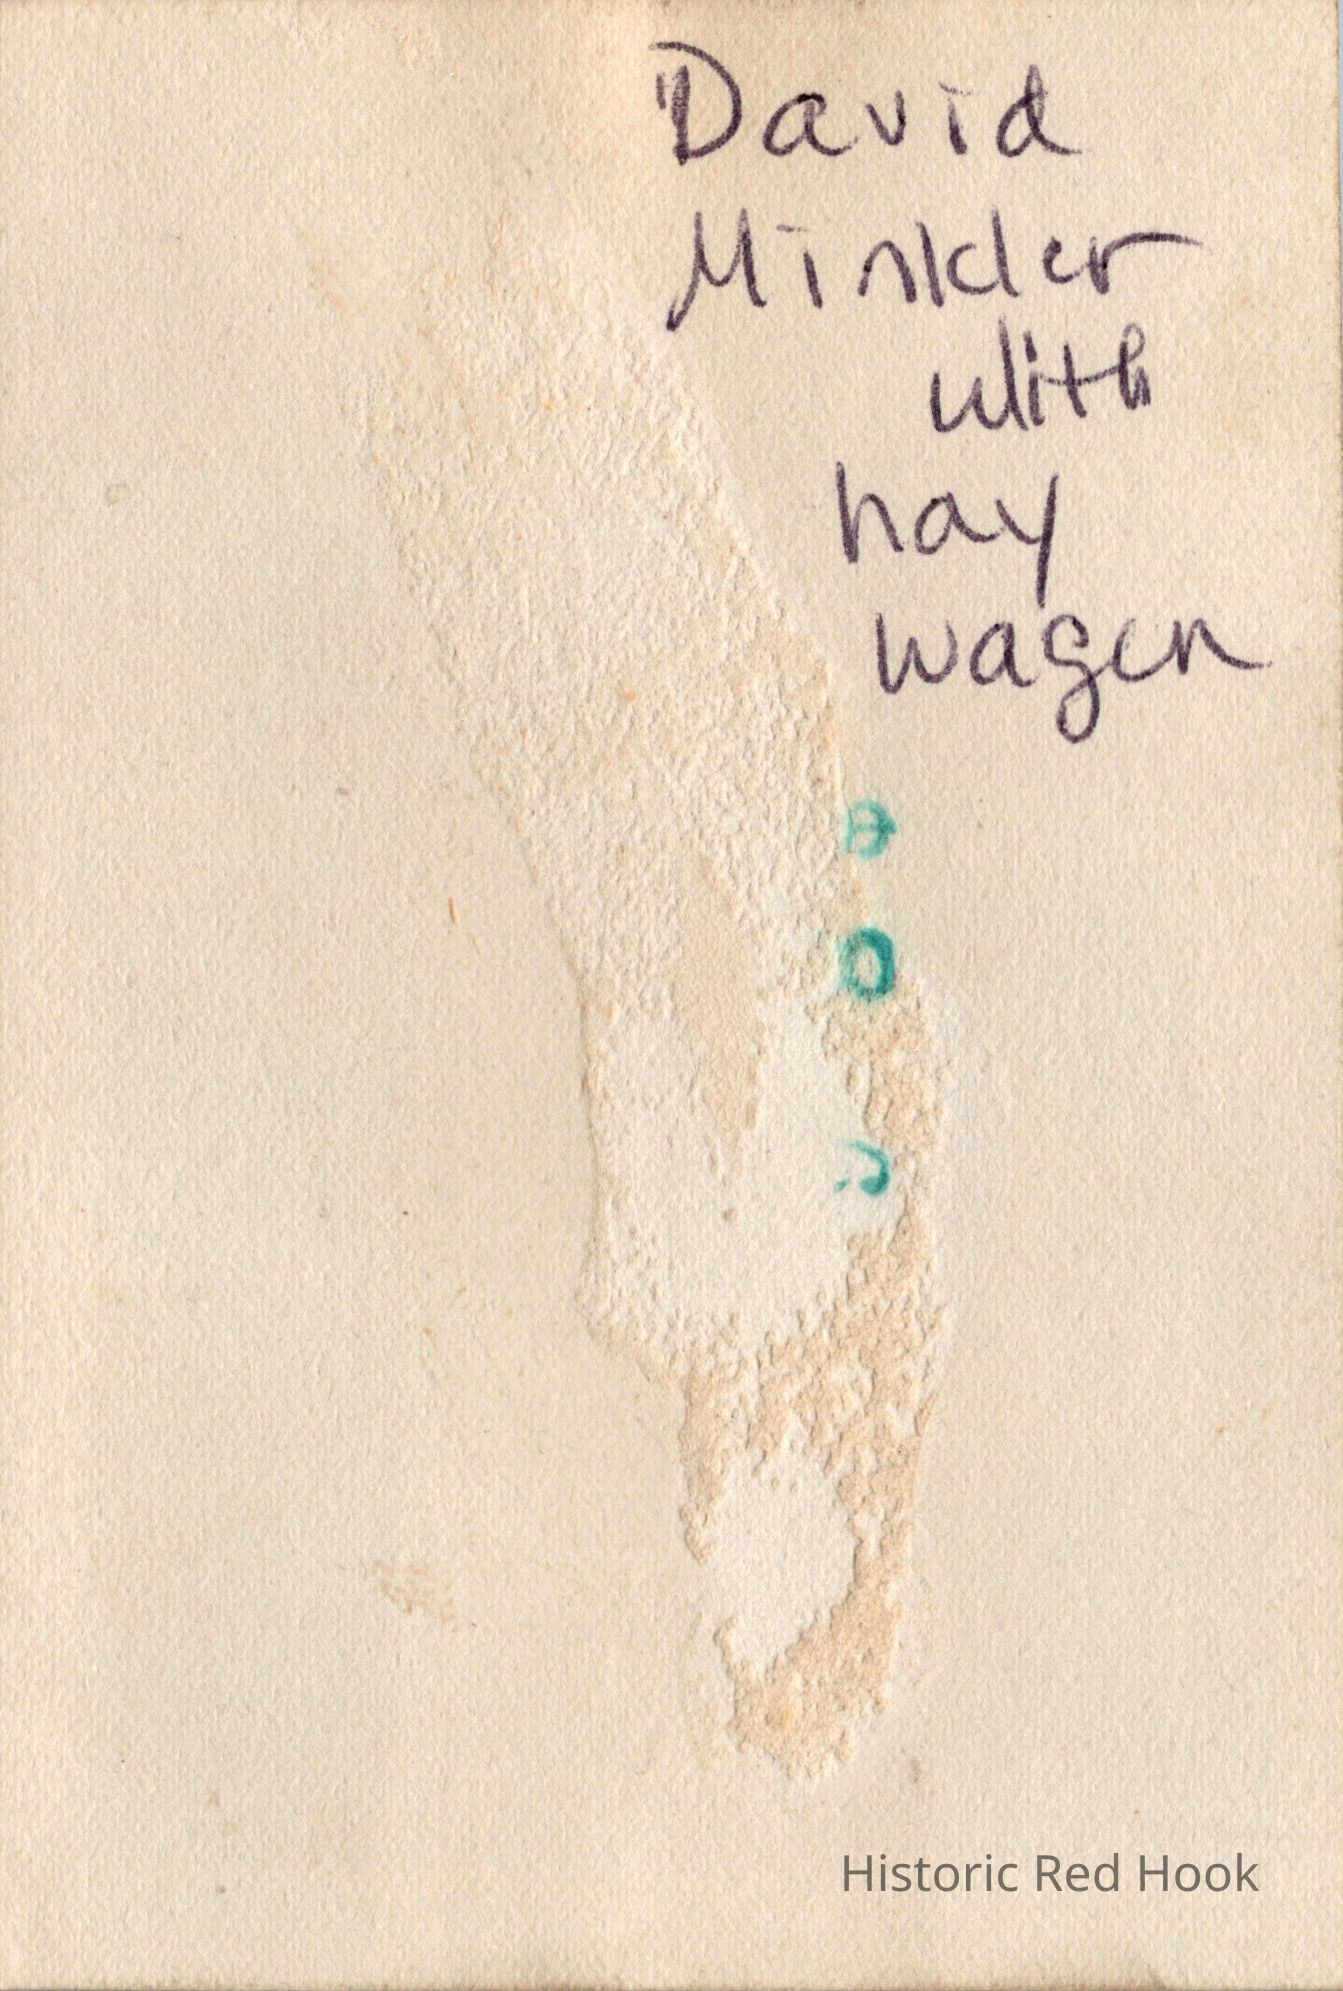 David
Minkler
with
hay
wagen
Historic Red Hook